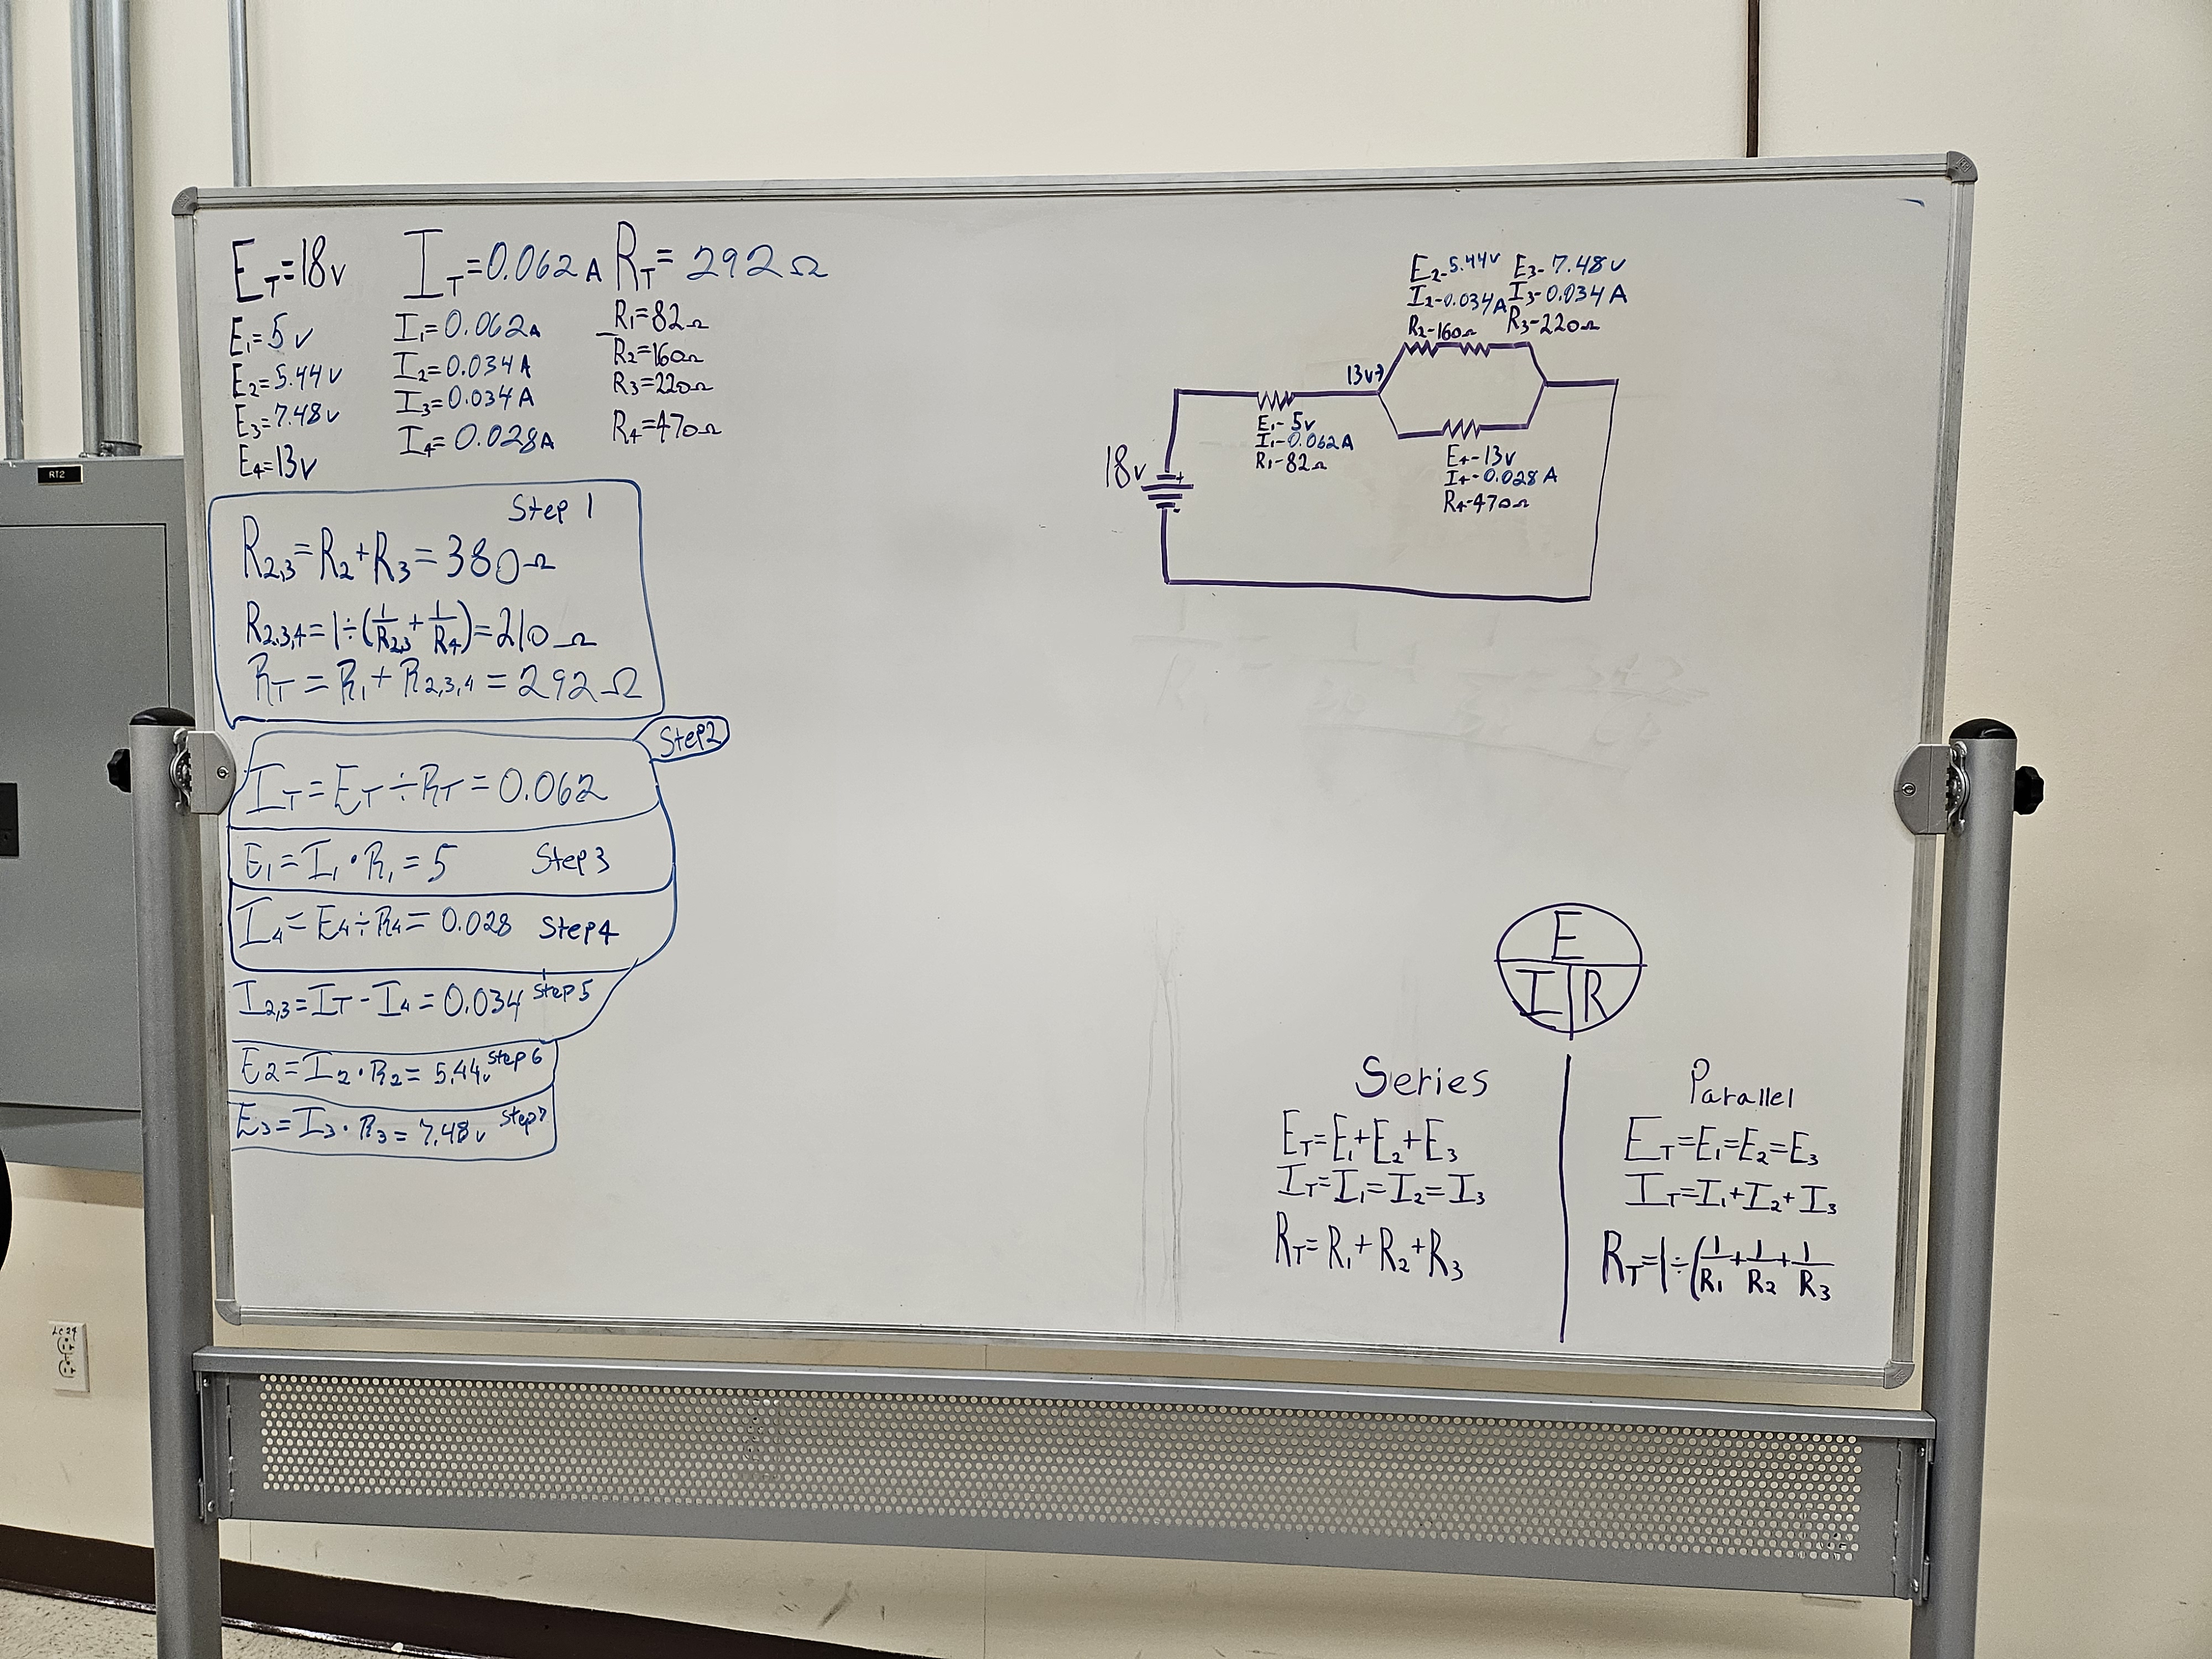 E_T=18v I_T=0.062 A R_T= 292 Ω
E₁=5 v I₁=0.062A R₁=82Ω
E₂=5.44 v I₂=0.034A R₂=160Ω
E₃=7.48 v I₃=0.034A R₃=220Ω
E₄=13v I₄=0.028A R₄=470Ω
Step 1
R₂,₃=R₂+R₃=380Ω
R₂,₃,₄=1÷(1/R₂,₃+1/R₄)=210Ω
R_T=R₁+R₂,₃,₄=292Ω
Step2
I_T=E_T÷R_T=0.062
E₁=I₁·R₁=5 Step3
I₄=E₄÷R₄=0.028 Step4
I₂,₃=I_T-I₄=0.034 Step5
E2=I₂·R₂=5.44v Step 6
E₃=I₃·R₃=7.48v Step7
E₂-5.44v E₃-7.48v
I₂-0.034A I₃-0.034A
R₂-160Ω R₃-220Ω
13v→
E₁-5v
I₁-0.062A
R₁-82Ω
18v
+
-
E₄-13v
I₄-0.028A
R₄-470Ω
E
I R
Series
E_T=E₁+E₂+E₃
I_T=I₁=I₂=I₃
R_T=R₁+R₂+R₃
Parallel
E_T=E₁=E₂=E₃
I_T=I₁+I₂+I₃
R_T=1÷(1/R₁+1/R₂+1/R₃
RT2